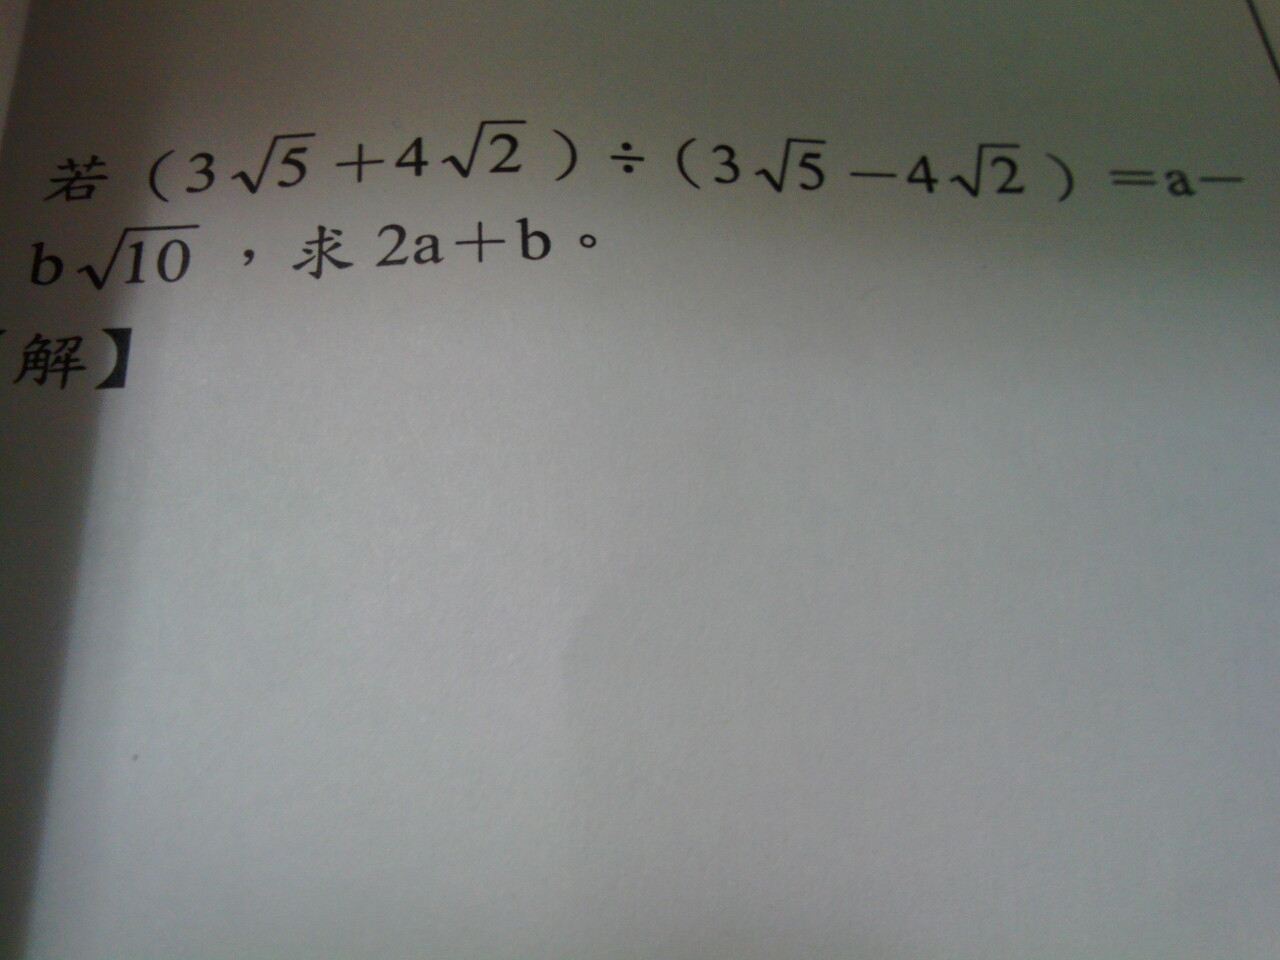 若（3√5＋4√2）÷（3√5－4√2）＝a－
b√10，求 2a＋b。
解】